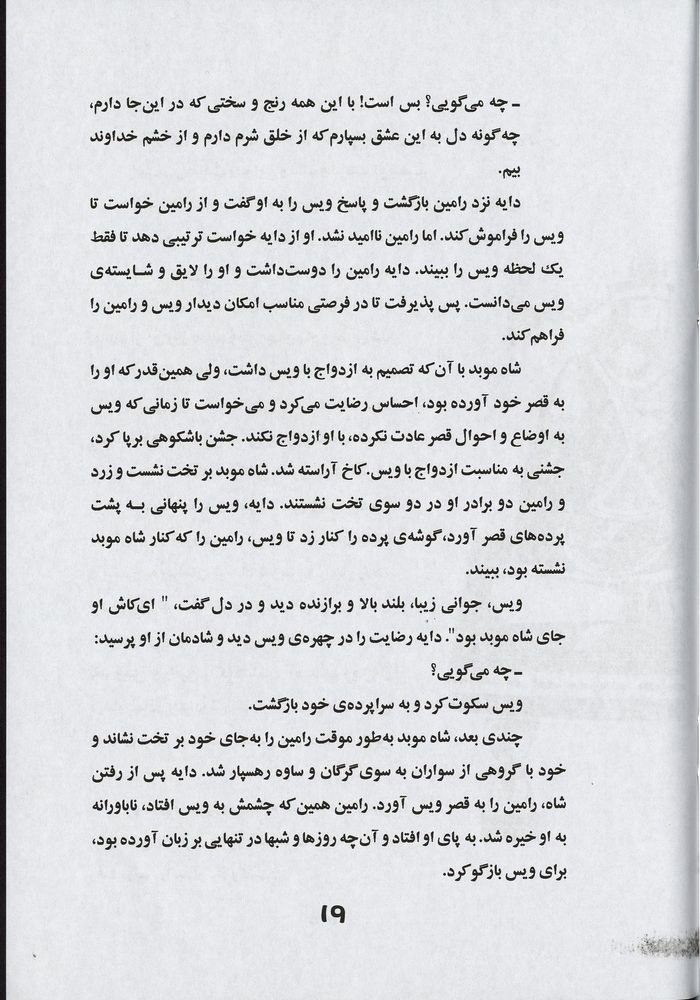 ـ چه می‌گویی؟ بس است! با این همه رنج و سختی که در این‌جا دارم،
چه‌گونه دل به این عشق بسپارم که از خلق شرم دارم و از خشم خداوند
بیم.
دایه نزد رامین بازگشت و پاسخ ویس را به او گفت و از رامین خواست تا
ویس را فراموش کند. اما رامین ناامید نشد. او از دایه خواست ترتیبی دهد تا فقط
یک لحظه ویس را ببیند. دایه رامین را دوست‌داشت و او را لایق و شـایسته‌ی
ویس می‌دانست. پس پذیرفت تا در فرصتی مناسب امکان دیدار ویس و رامین را
فراهم کند.
شاه موبد با آن‌که تصمیم به ازدواج با ویس داشت، ولی همین‌قدر که او را
به قصر خود آورده بود، احساس رضایت می‌کرد و می‌خواست تا زمانی که ویس
به اوضاع و احوال قصر عادت نکرده، با او ازدواج نکند. جشن باشکوهی برپا کرد،
جشنی به مناسبت ازدواج با ویس. کاخ آراسته شد. شاه موبد بر تخت نشست و زرد
و رامین دو برادر او در دو سوی تخت نشستند. دایه، ویس را پنهانی بـه پشت
پرده‌های قصر آورد، گوشه‌ی پرده را کنار زد تا ویس، رامین را که کنار شاه موبد
نشسته بود، ببیند.
ویس، جوانی زیبا، بلند بالا و برازنده دید و در دل گفت، " ای‌کاش او
جای شاه موبد بود". دایه رضایت را در چهره‌ی ویس دید و شادمان از او پرسید:
ـ چه می‌گویی؟
ویس سکوت کرد و به سراپرده‌ی خود بازگشت.
چندی بعد، شاه موبد به‌طور موقت رامین را به‌جای خود بر تخت نشاند و
خود با گروهی از سواران به سوی گرگان و ساوه رهسپار شد. دایه پس از رفتن
شاه، رامین را به قصر ویس آورد. رامین همین که چشمش به ویس افتاد، ناباورانه
به او خیره شد. به پای او افتاد و آن‌چه روزها و شبها در تنهایی بر زبان آورده بود،
برای ویس بازگو کرد.
۱۹